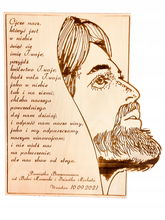 Ojcze nasz,
któryś jest
w niebie
święć się
imię Twoje,
przyjdź
królestwo Twoje,
bądź wola Twoja
jako w niebie
tak i na ziemi;
chleba naszego
powszedniego
daj nam dzisiaj
i odpuść nam nasze winy,
jako i my odpuszczamy
naszym winowajcom
i nie wódź nas
na pokuszenie,
ale nas zbaw od złego.
Pamiątka Bierzmowania
od
10.09.2021